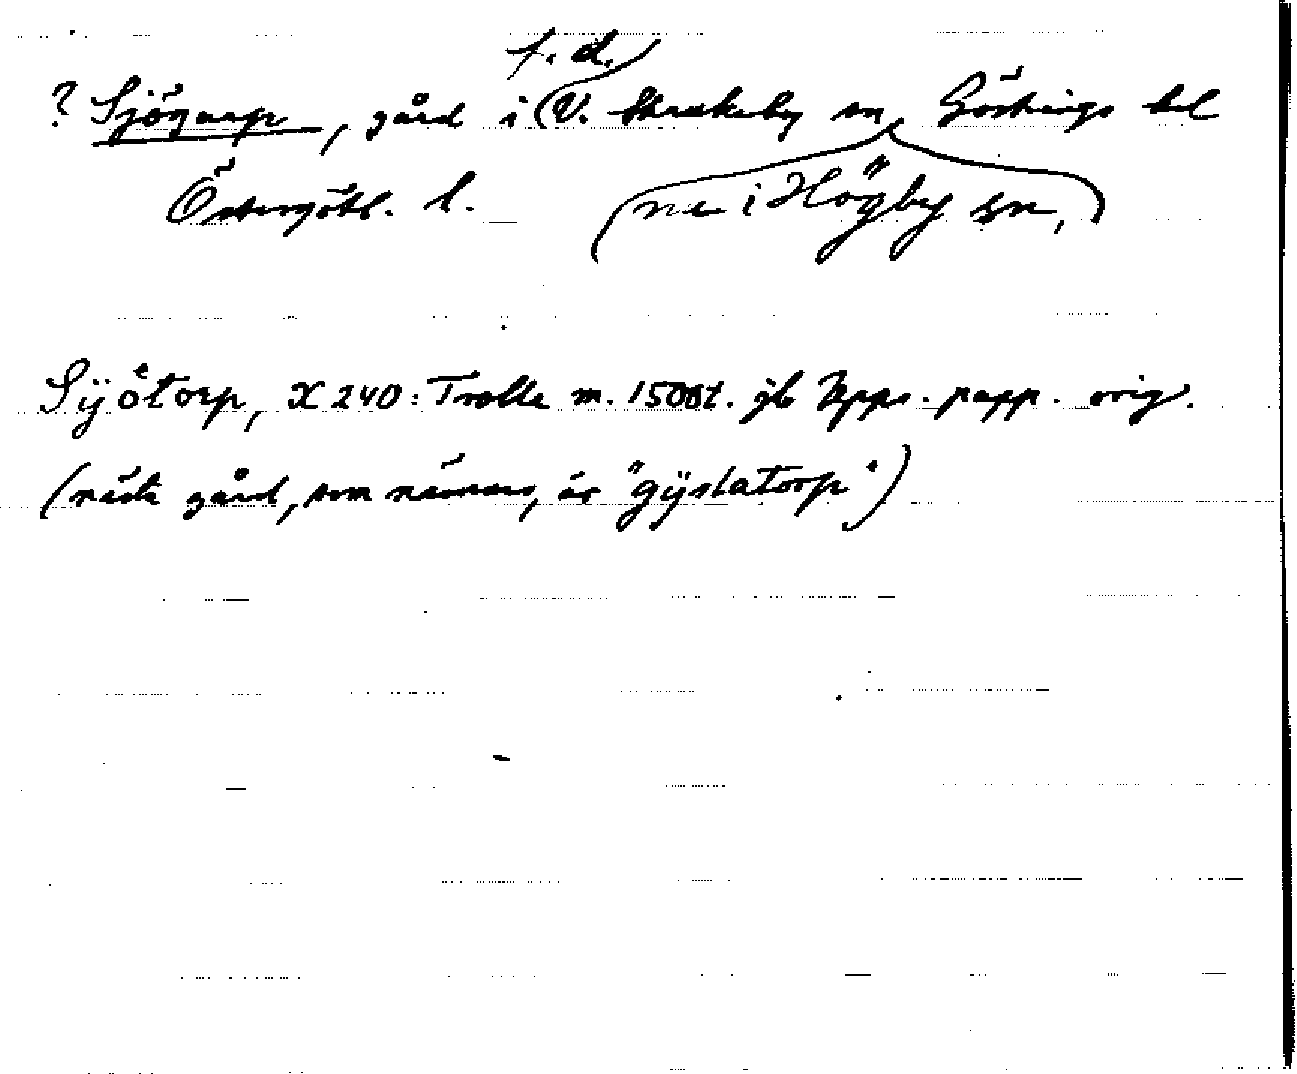 f. d.
? Sjögarp, gård i (V. Skrukeby sn, Göstrings hd
Östergötl. l. (nu i Högby sn,)
Syötorp, X 240: Trolle m. 1500t. jb Upps. papp. orig.
(nästa gård, som nämnes, är "gyslatorp")